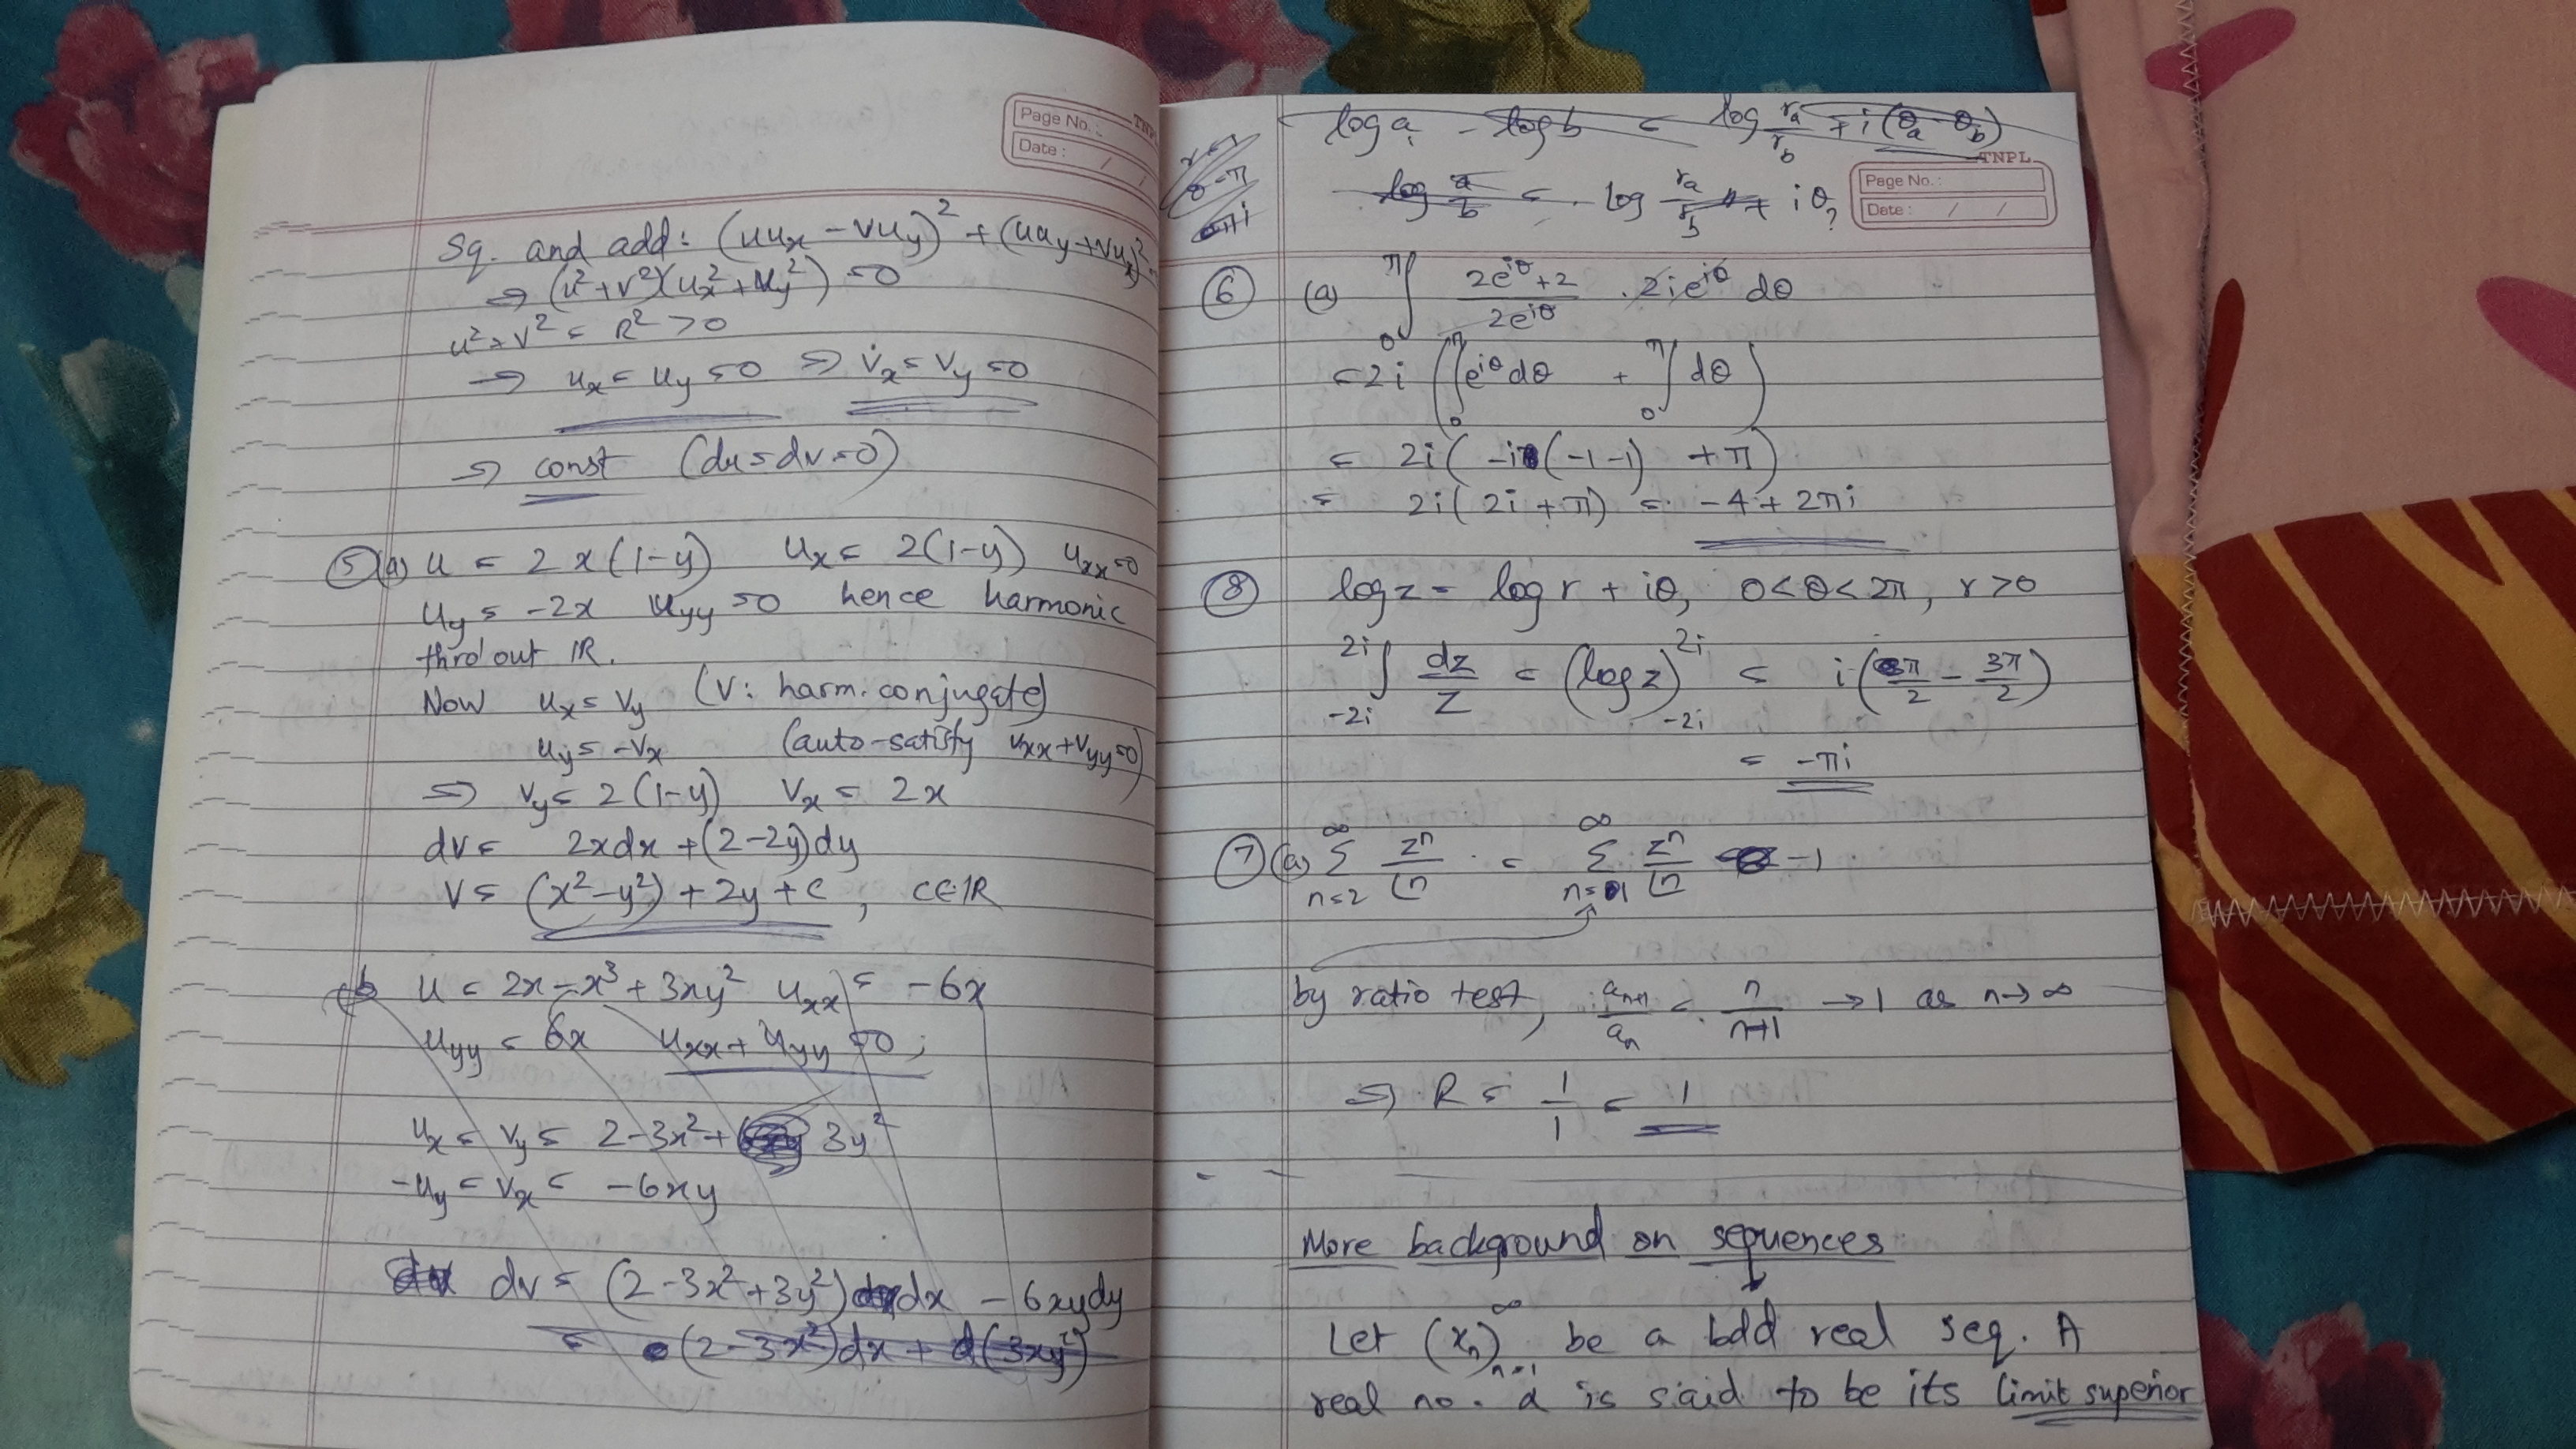 Page No.:
Date: / /
Sq. and add: (uuₓ - vu_y)² + (uu_y + vuₓ)² =
⇒ (u²+v²)(uₓ²+u_y²) = 0
u²+v² = R² > 0
⇒ uₓ = u_y = 0 ⇒ vₓ = v_y = 0
⇒ const (du = dv = 0)
⑤ (a) u = 2x(1-y) uₓ = 2(1-y) uₓₓ = 0
u_y = -2x u_yy = 0 hence harmonic
thro'out IR.
Now uₓ = v_y (v: harm. conjugate)
u_y = -vₓ (auto-satisfy vₓₓ + v_yy = 0)
⇒ v_y = 2(1-y) vₓ = 2x
dv = 2xdx + (2-2y)dy
v = (x²-y²) + 2y + c, c∈IR
(b) u = 2x - x³ + 3xy² uₓₓ = -6x
u_yy = 6x uₓₓ + u_yy = 0;
uₓ = v_y = 2-3x² + 3y²
-u_y = vₓ = -6xy
dv = (2-3x²+3y²) dx - 6xydy
= (2-3x²)dx + d(3xy²)
TNPL
Page No.:
Date: / /
log a - log b = log rₐ/r_b + i(θₐ - θ_b)
log a/b = log rₐ/r_b + iθ?
⑥ (a) ∫₀^π (2e^{iθ}+2)/(2e^{iθ}) . 2ie^{iθ} dθ
= 2i (∫₀^π e^{iθ}dθ + ∫₀^π dθ)
= 2i(-i(-1-1) + π)
= 2i(2i+π) = -4 + 2πi
⑧ log z = log r + iθ, 0<θ<2π, r>0
∫_{-2i}^{2i} dz/z = (log z)_{-2i}^{2i} = i(π/2 - 3π/2)
= -πi
⑦ (a) Σ_{n=2}^∞ zⁿ/n = Σ_{n=1}^∞ zⁿ/n - 1
by ratio test, aₙ₊₁/aₙ = n/n+1 → 1 as n→∞
⇒ R = 1/1 = 1
More background on sequences
Let (xₙ)_{n=1}^∞ be a bdd real seq. A
real no. α is said to be its limit superior